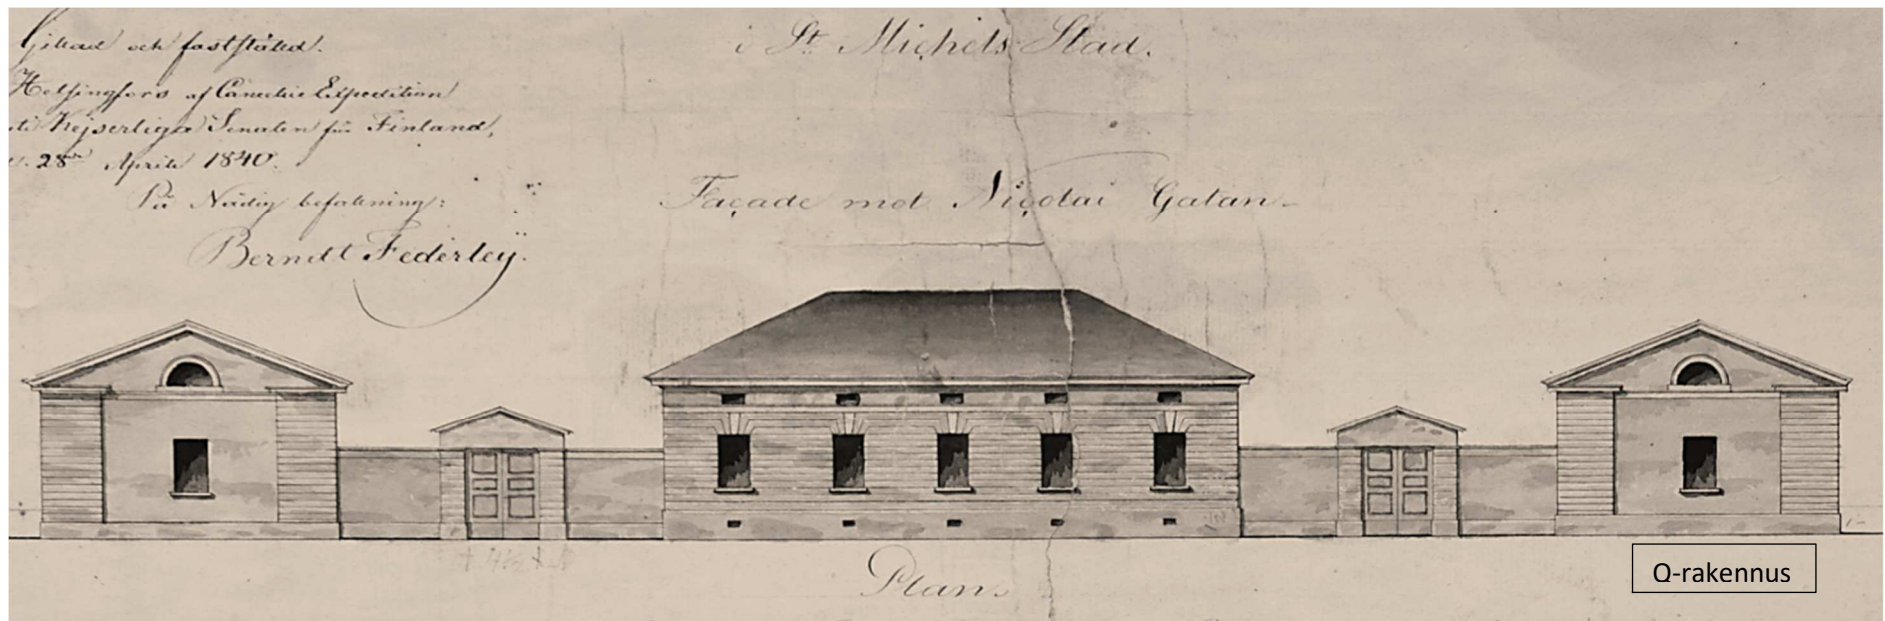 Gillad och fastställd.
Helsingfors af Canselie Expedition
uti Kejserliga Senaten för Finland,
d. 28de April 1840.
På Nådig befallning:
Berndt Federley.
i St Michels Stad.
Façade mot Nicolai Gatan.
Plan.
Q-rakennus